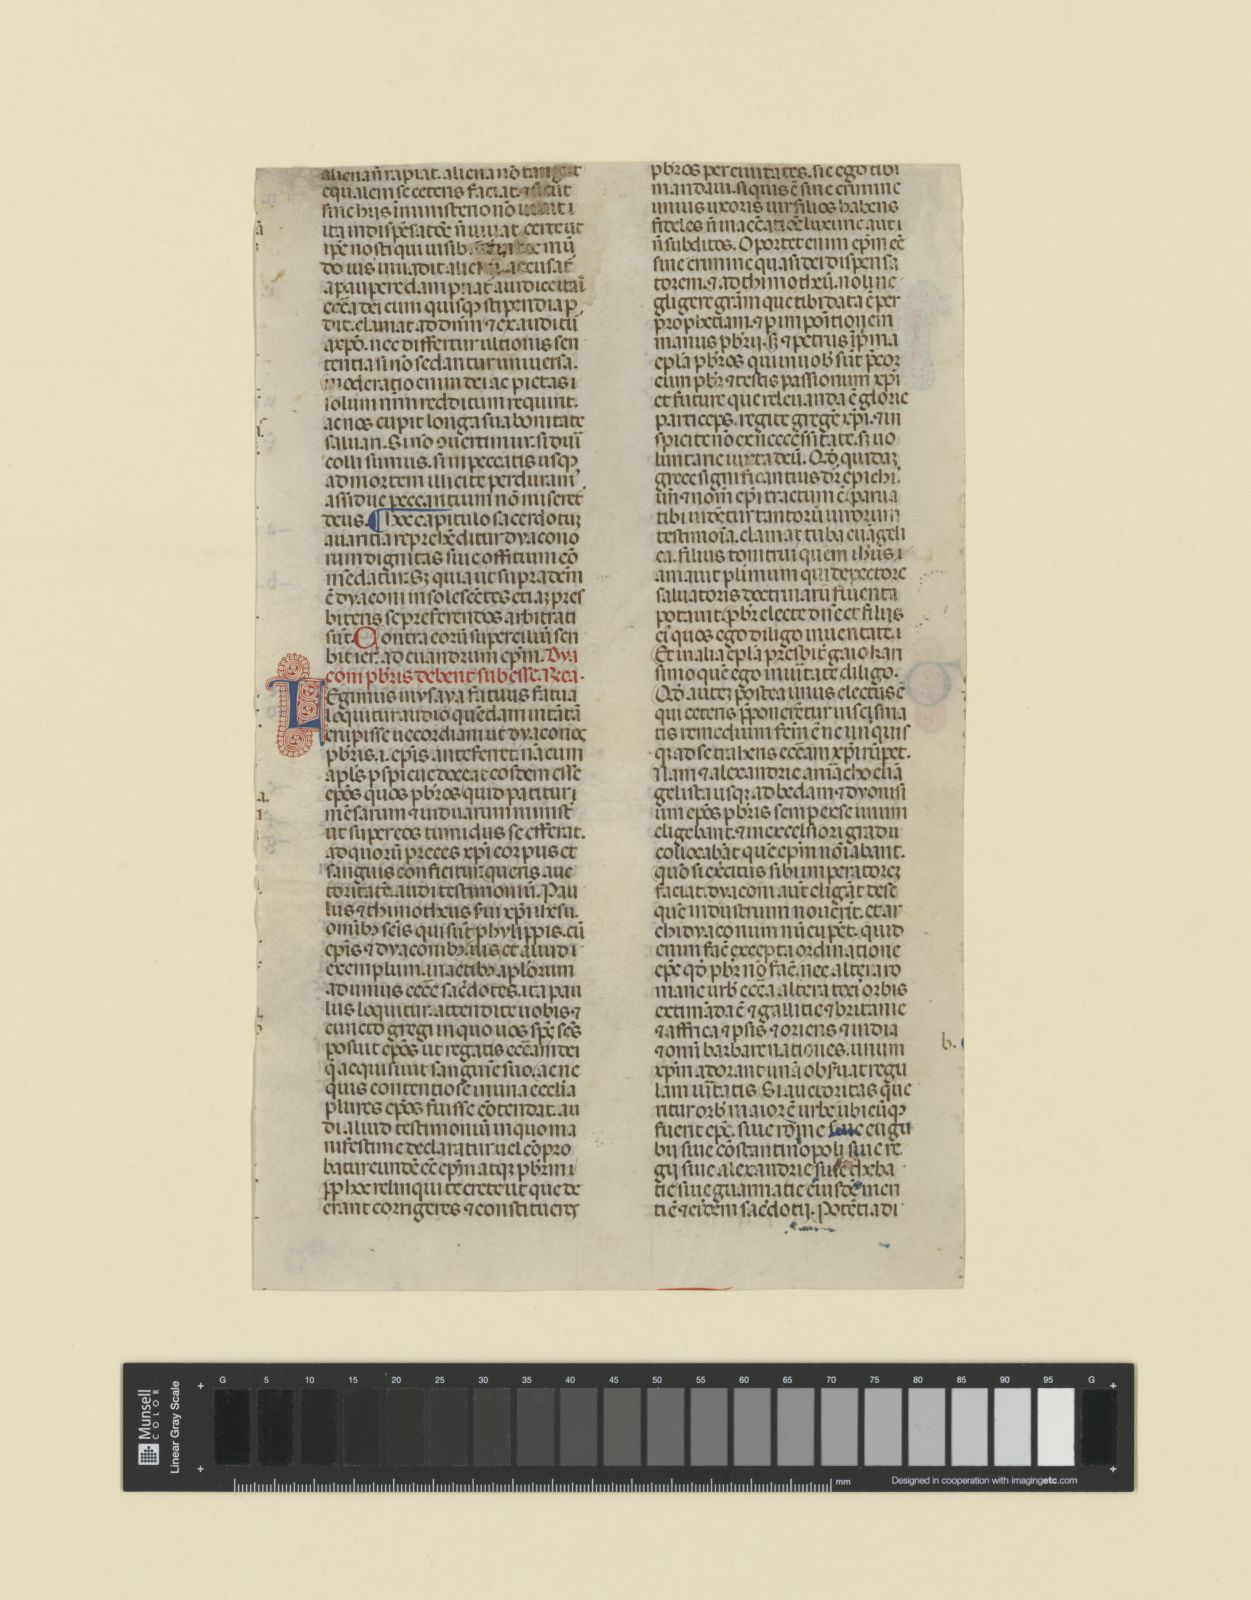 alienan̄ rapiat. aliena nō tangat
equalem se ceteris faciat.
sine hijs in ministerio nō uiuat i
ita in dispēsatōe n̄ uiuat certe ut
ip̄e nosti qui uisib. mū
do uis inuadit accusat̄
a paupere dampnat̄ aut dicc itaī
ecc̄a dei cum quisq̨ stipendia p
dit. clamat ad dn̄m ⁊ exauditū
a xp̄o. nec differtur ultionis sen
tentia si nō sedantur uniuersa.
moderatio enim dei ac pietas i
iolum nr̄m redditum requirit.
ac nos cupit longa sua bonitate
saluari. Si nō ꝯuertimur. si duri
colli sumus. si in peccatis usq̨
ad mortem illicite perduram̄
assidue peccantium nō miseret̄
deus. ¶ hoc capitulo sacerdotuꝫ
auaritia reprehēditur dyacono
rum dignitas siue offitium cō
mēdatur. Sꝫ quia ut supra dēm
ē dyaconi insolescētes etiaꝫ pres
biteris se preferendos arbitrati
sūt. Contra eorū superciliū scri
bit ier̄. ad euandrum ep̄m. Dya
coni pb̄ris debent sub esse. Rca.
LEgimus in ysaya fatuus fatua
loquitur audio quēdam in tātā
erupisse uecordiam ut dyaconos
pb̄ris .i. ep̄is. anteferret. nā cum
apl̄s pspicue doceat eosdem esse
ep̄os quos pb̄ros quid patitur i
mēsarum ⁊ uiduarum minist̄
ut super eos tumidus se efferat.
ad quorū preces xp̄i corpus et
sanguis conficitur. queris auc
toritatē. audi testimoniū. Pau
lus ⁊ thimotheus sui xp̄i ihesu.
omnibꝫ sc̄is qui sūt phylippis. cū
ep̄is ⁊ dyaconibꝫ. uis et aliud i
exemplum. in actibꝫ apl̄orum
ad unius ecc̄e sac̄dotes. ita pau
lus loquitur. attendite uobis ⁊
cuncto gregi in quo uos sp̄c sc̄s
posuit ep̄os ut regatis ecc̄am dei
q̄ acquisiuit sanguīe suo. ac ne
quis contentiose in una ecclīa
plures ep̄os fuisse cōtendat. au
di aliud testimoniū in quo ma
nifestime declaratur uel cōpro
batur eundē ēē ep̄m atqꝫ pb̄rm i
pp̄ hoc relinqui te crete ut que de
erant corrigeres ⁊ constitueres
pb̄ros per ciuitates. sic ego tibi
mandaui. si quis ē sine crimine
unius uxoris uir filios habens
fideles n̄ in accusatiōe luxurie aut i
n̄ subditos. Oportet enim ep̄m ēē
sine crimine quasi dei dispensa
torem. ⁊ ad thimotheū. noli ne
gligere gr̄am que tibi data ē per
prophetiam. ⁊ p impoītionem
manus pb̄rij. sꝫ ⁊ petrus ī p̄ma
epl̄a pb̄ros qui in uob̄ sūt p̄cor
cum pb̄r ⁊ testis passionum xp̄i
et future que releuanda ē glorie
particeps. regite gregē xp̄i. ⁊ in
spicite nō ex neccēssitate. sꝫ uo
luntarie iuxta deū. Qd̄ quidaꝫ
grece significantius dr̄ epichi.
un̄ ⁊ nom̄ ep̄i tractum ē. parua
tibi uidētur tantorū uirorum
testimoīa. clamat tuba euāgeli
ca. filius tonitrui quem ihūs .i.
amauit plimum qui de pectore
saluatoris doctrinarū fluenta
potauit. pb̄r electe dn̄e et filijs
eī quos ego diligo in ueritate. i
Et in alia epl̄a presbit̄ gaio kari
simo que ego in uitate diligo.
Qd̄ autē postea unus electus ē
qui ceteris p̄poneretur in scisma
tis remedium fcm̄ ē ne unquis
q̨ ad se trahens ecc̄am xp̄i rūpet.
Nam ⁊ alexandrie a marcho euā
gelista usq̨ ad hedam ⁊ dyonisi
um ep̄os pb̄ris semper ex se unum
eligebant. ⁊ in excelsiori gradu
collocabāt quē ep̄m noīabant.
quō si ex̄citus sibi imperatoreꝫ
faciat. dyaconi aut̄ eligāt de se
quē industrium nouerit. et ar
chidyaconum nūcupēt. quid
enim fac̄ excepta ordinatione
ep̄c qd̄ pb̄r nō fac̄. nec altera ro
mane urb̄ ecc̄a. altera toci orbis
extimāda ē ⁊ gallie ⁊ britanie
⁊ affrica ⁊ p̄sis ⁊ oriens ⁊ india
⁊ omī barbare nationes. unum
xp̄m adorant unā obs̄uāt regu
lam ūitatis. Si auctoritas que
ritur orb̄ maior ē urbe. ubicūq̨
fuerit ep̄c. siue rome siue eugu
bij siue cōstantinopoli siue re
gij siue alexandrie siue theba
tie siue guarmatie eiusdē meri
ti ē ⁊ eidem sac̄dotij. Potētia di
b.
Munsell
COLOR
Linear Gray Scale
G 5 10 15 20 25 30 35 40 45 50 55 60 65 70 75 80 85 90 95 G
mm
Designed in cooperation with imagingetc.com